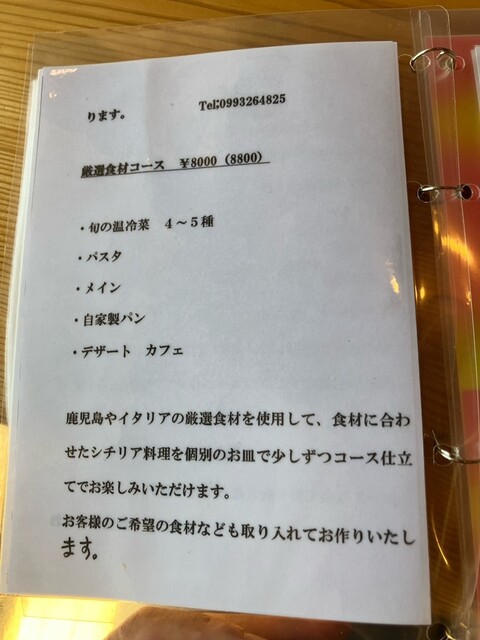 ります。 Tel;0993264825
厳選食材コース ￥8000（8800）
・旬の温冷菜 ４～５種
・パスタ
・メイン
・自家製パン
・デザート カフェ
鹿児島やイタリアの厳選食材を使用して、食材に合わ
せたシチリア料理を個別のお皿で少しずつコース仕立
てでお楽しみいただけます。
お客様のご希望の食材なども取り入れてお作りいたし
ます。